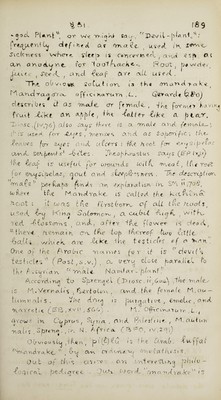 § 31 189
-god Plant", or we might say, "Devil-plant":
frequently defined as male, used in some
sickness where sleep is concerned, and esp as
an anodyne for toothache. Root, powder,
juice, seed, and leaf are all used.
The obvious solution is the mandrake,
Mandragora officinarum L. Gerarde
describes it as male or female, the former having
fruit like an apple, the latter like a pear.
also says there is a male and female:
it is used for eyes, menses and as soporific; the
leaves for eyes and ulcers: the root for erysipelas
and serpents' bites. Theophrastus says
the leaf is useful for wounds with meal, the root
for erysipelas, gout and sleeplessness. The description
"male" perhaps finds an explanation in
where the Mandrake is called the
root: it was the firstborn of all the roots,
used by King Solomon, a cubit high, with
red blossoms, and, after the flower is dead,
"there remain on the top thereof two little
balls which are like the testicles of a man."
One of the Arabic names for it is "devil's
testicles" (Post, ), a very close parallel to
the Assyrian "male Namtar-plant".
According to Sprengel (Diosc. ii, ) the male
M. vernalis, Bertolon., and the female M. au-
tumnalis. The drug is purgative, emetic, and
narcotic. M. Officinarum, L.,
grows in Cyprus, Syria and Palestine, M. autum
nalis Spreng. in N. Africa
Obviously, then, is the Arab.
"mandrake" by an ordinary metathesis.
Out of this arises an interesting philo-
logical pedigree. Our word "mandrake" is